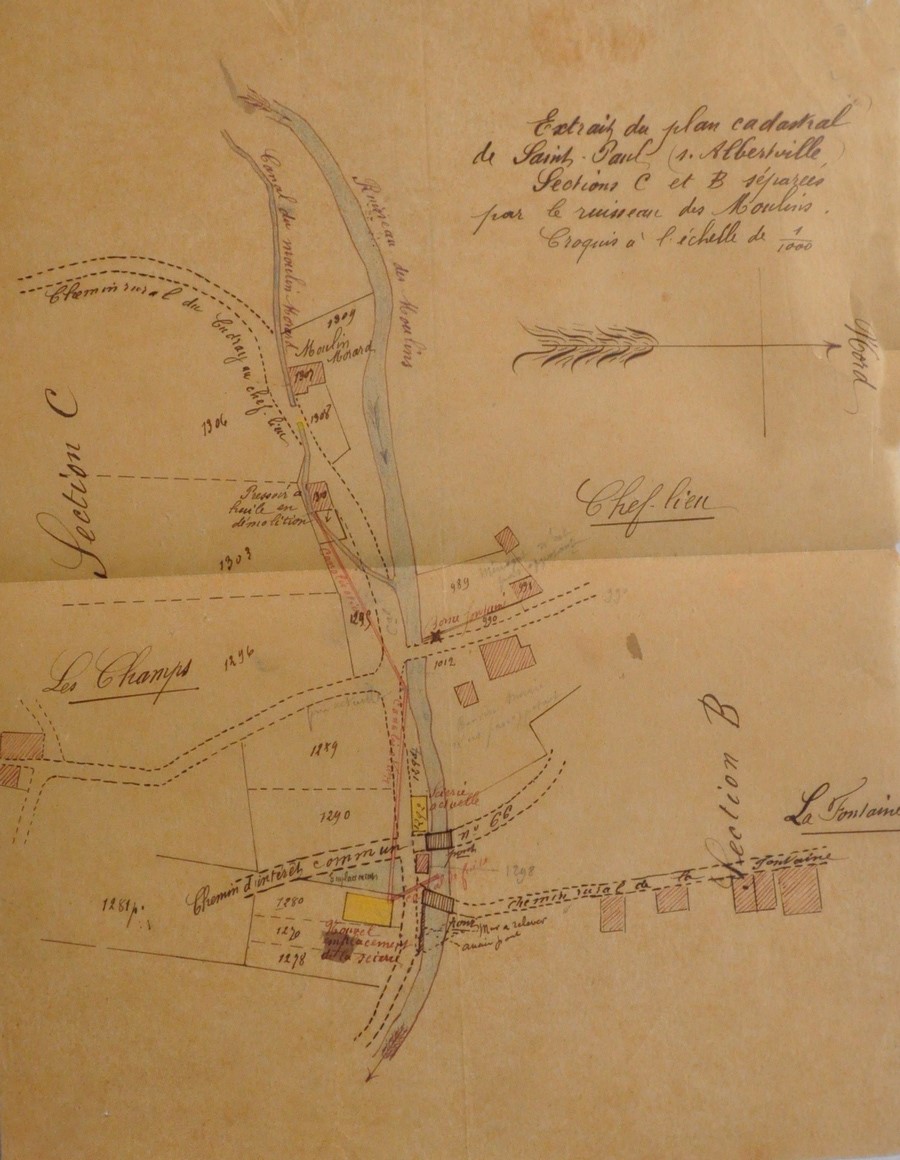 Extrait du plan cadastral
de Saint-Paul (s. Albertville)
Sections C et B séparées
par le ruisseau des Moulins.
Croquis à l'échelle de 1/1000
Nord
Canal du moulin Morard
Ruisseau des Moulins
Chemin rural du Cudray au chef-lieu
1309
Moulin
Morard
1307
1308
1306
Section C
Pressoir à
huile en
démolition
1303
Chef-lieu
989
991
990
1012
1299
1296
Les Champs
1289
1290
Scierie
actuelle
n° 66
Chemin d'intérêt commun
1298
Section B
La Fontaine
chemin rural de la fontaine
Emplacement
1281 p.
1280
1279
1278
Nouvel
emplacement
de la scierie
pont
Mur à relever
ancien pont